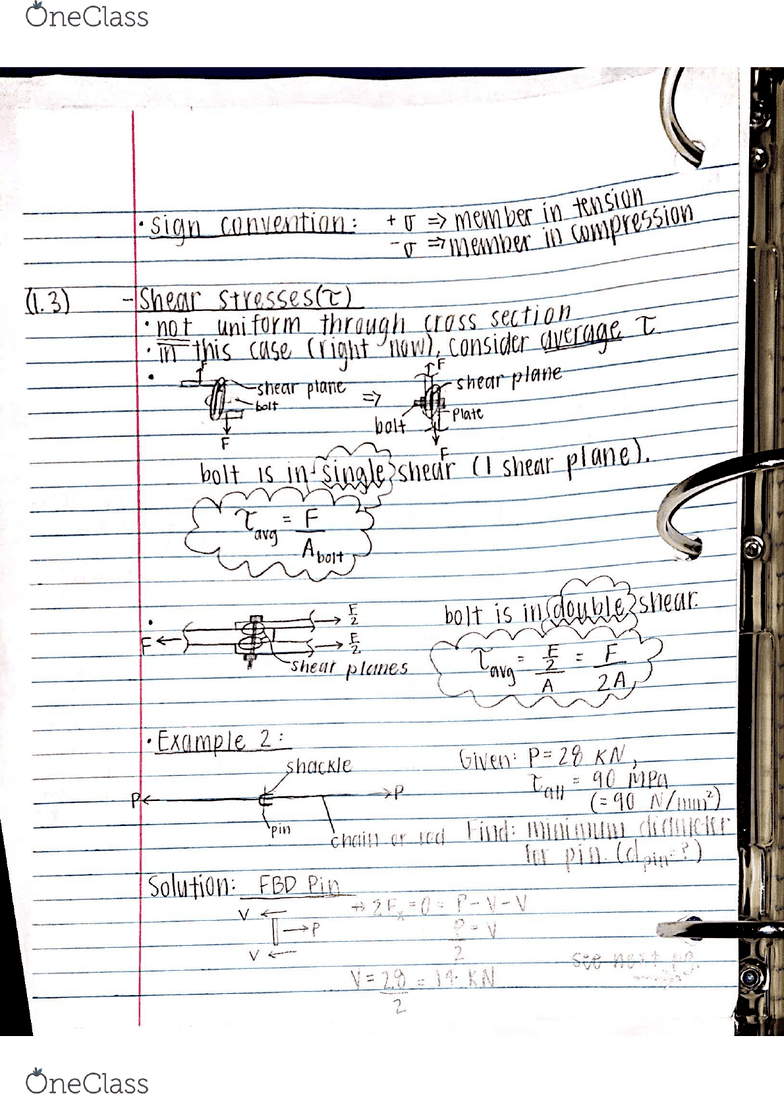 OneClass
• sign convention: +σ ⇒ member in tension
-σ ⇒ member in compression
(1.3) - Shear stresses (τ)
• not uniform through cross section
• in this case (right now), consider average τ
F
shear plane
bolt
F
⇒
F
shear plane
plate
bolt
F
bolt is in single shear (1 shear plane).
τavg = F / Abolt
F
F/2
F/2
shear planes
bolt is in double shear.
τavg = (F/2)/A = F/2A
• Example 2:
shackle
P
P
pin
chain or rod
Given: P = 28 KN,
τall = 90 MPa
(= 90 N/mm²)
Find: minimum diameter
for pin. (dpin = ?)
Solution: FBD Pin
V
P
V
→ ΣFx = 0 = P - V - V
P/2 = V
V = 28/2 = 14 KN
see next pg.
OneClass